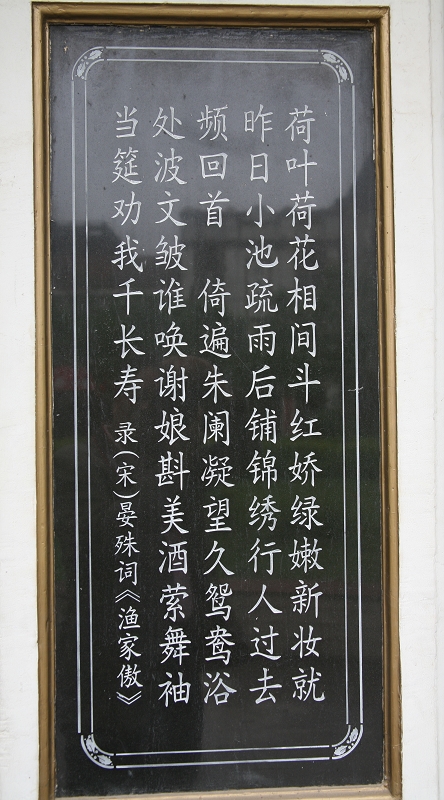 荷叶荷花相间斗红娇绿嫩新妆就
昨日小池疏雨后铺锦绣行人过去
频回首 倚遍朱阑凝望久鸳鸯浴
处波文皱谁唤谢娘斟美酒萦舞袖
当筵劝我千长寿 录(宋)晏殊词《渔家傲》